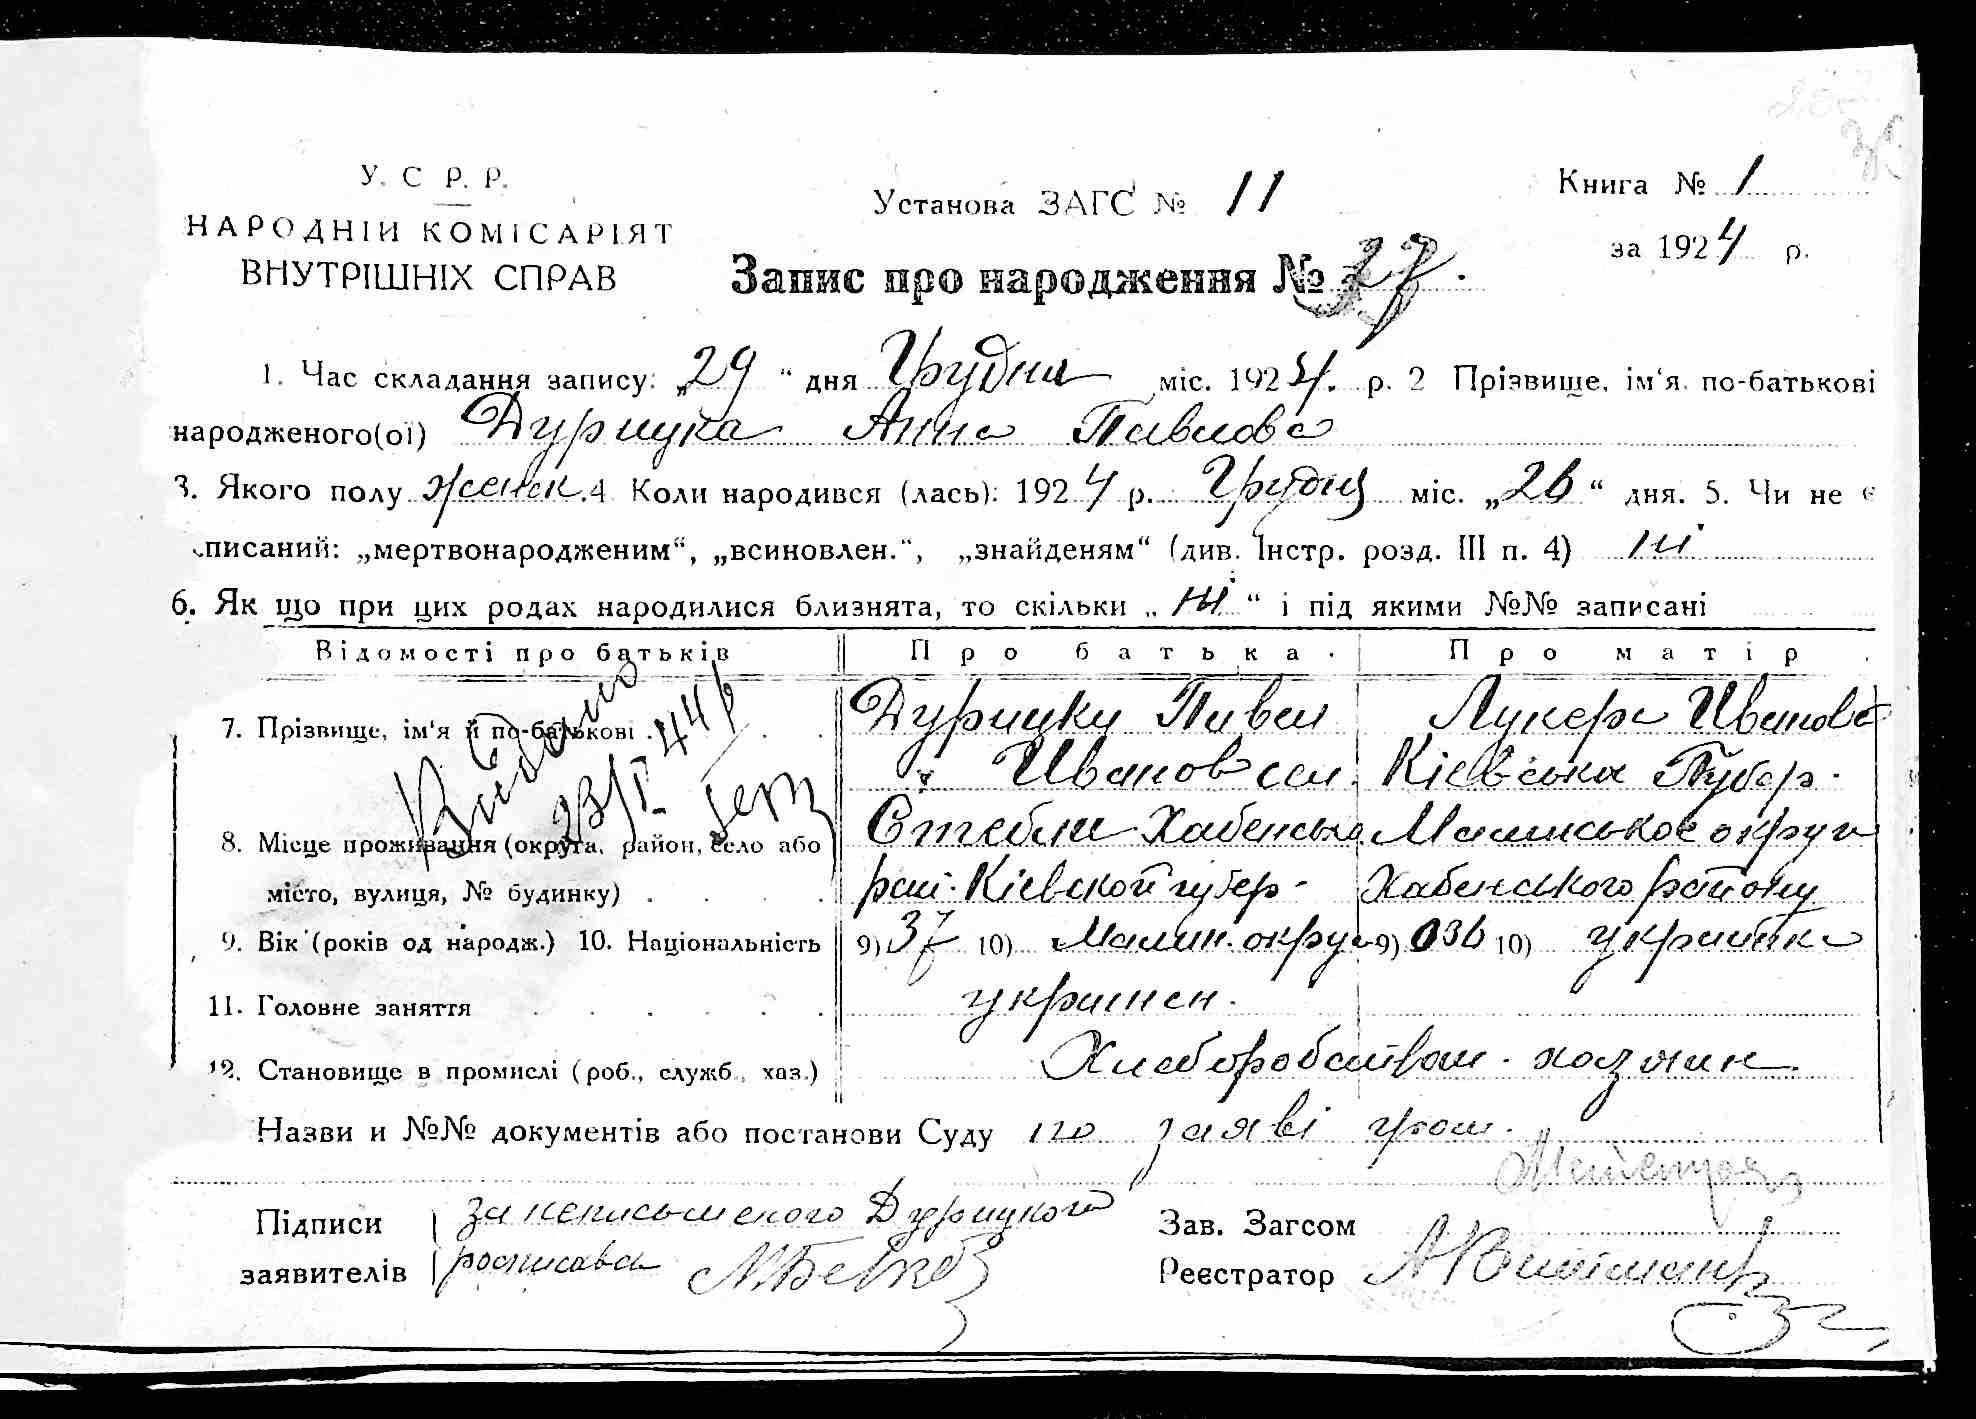 У. С. Р. Р.
НАРОДНІЙ КОМІСАРІЯТ
ВНУТРІШНІХ СПРАВ
Установа ЗАГС № 11
Книга № 1
за 1924 р.
Запис про народження № 37.
1. Час складання запису: „29“ дня Грудня міс. 1924. р. 2 Прізвище, ім'я, по-батькові
народженого(ої) Дурицка Анна Павлова
3. Якого полу женск. 4 Коли народився (лась): 1924 р. Грудня міс. „26“ дня. 5. Чи не є
писаний: „мертвонародженим“, „всиновлен.“, „знайденям“ (див. Інстр. розд. III п. 4) ні
6. Як що при цих родах народилися близнята, то скільки „ні“ і під якими №№ записані
Відомості про батьків Про батька. Про матір
7. Прізвище, ім'я й по-батькові
Дурицки Павел
Иванов сел.
Лукера Иванова
Видано
23/I 44 р
8. Місце проживання (округа, район, село або
місто, вулиця, № будинку)
Стебли Хабенська
рай. Кіевской губер-
Кіевська Губер.
Малинськое округи
Хабенського району
9. Вік (років од народж.) 10. Національність 9) 37 10) Малин. округа 9) 036 10) украінка
украінен.
11. Головне заняття
Хлеборобством. хозяин.
12. Становище в промислі (роб., служб., хаз.)
Назви и №№ документів або постанови Суду по заяві гром.
Підписи заявителів
за неписьменого Дурицкого
росписавса
Зав. Загсом
Реєстратор